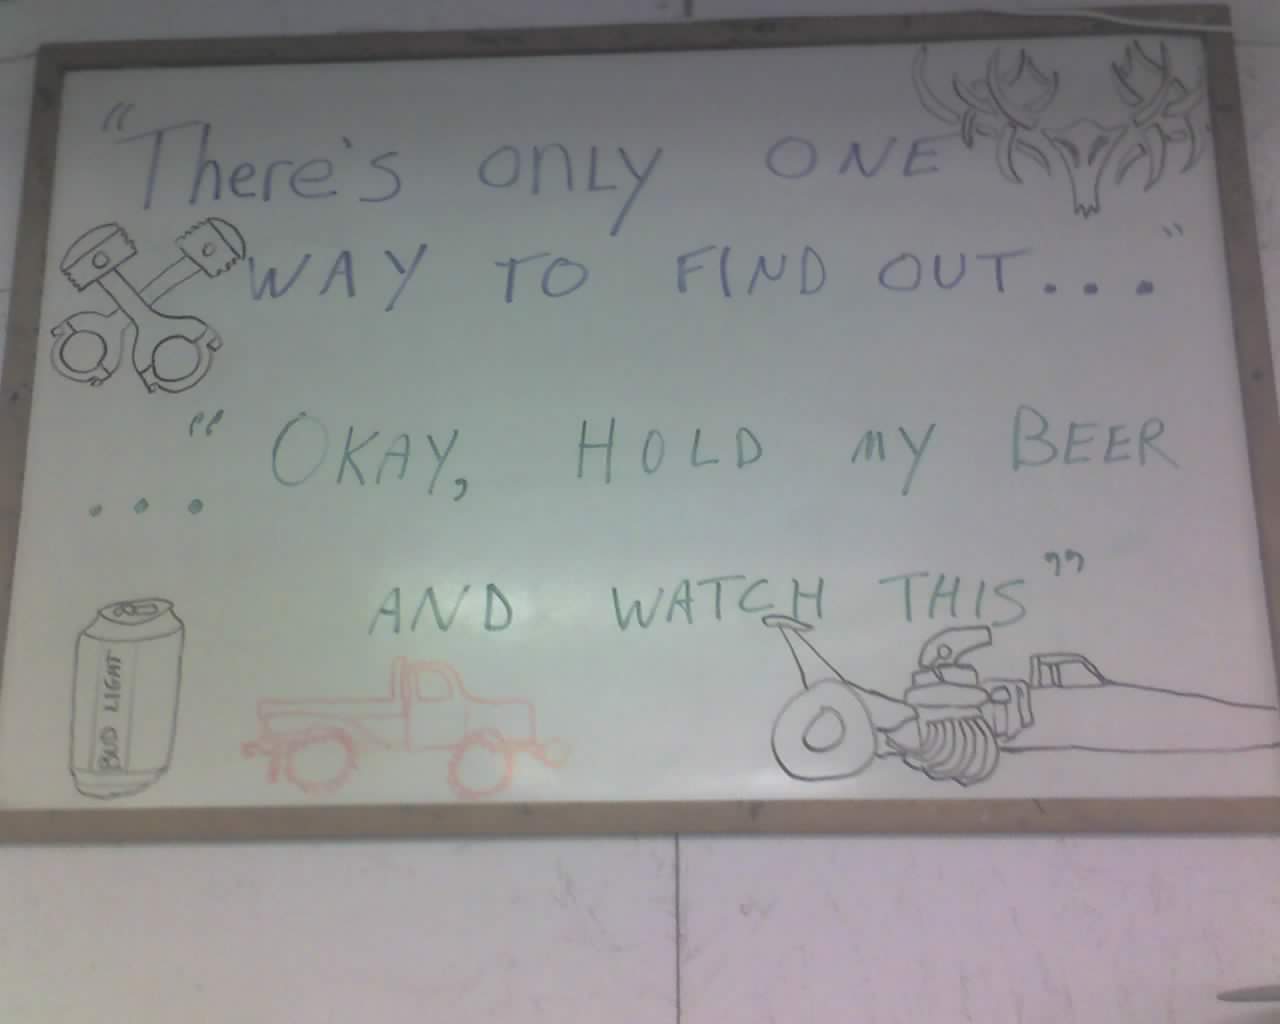 "There's ONLY ONE
WAY TO FIND OUT..."
..."OKAY, HOLD MY BEER
AND WATCH THIS"
BUD LIGHT